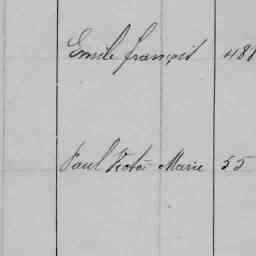 Emile françois 481
Paul Victor Marie 55